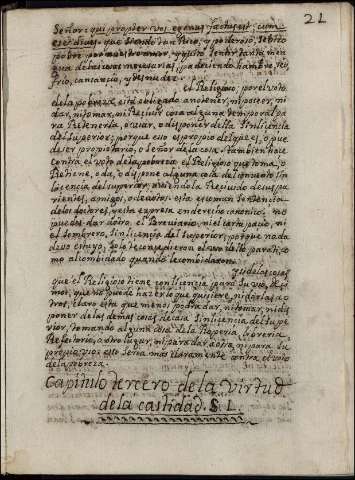 21
Señor: qui propter vos egenus factus est, cum
esset dives. que siendo tan Rico, y poderoso, se hizo
pobre por nuestro amor, y quiso sentir tanta men
gua de las cosas necesarias, padeciendo hambre, sed
frio, cansancio, y desnudez.
el Religioso, por el voto
de la pobreza, está obligado a no tener, ni poseer, ni
dar, ni tomar, ni Recivir cosa alguna temporal pa
ra Retenerla, o usar, o disponer de ella sin licencia
del superior; porque esto es propio de
de ser propietario, o señor de la cosa. tambien hace
contra el voto de la pobreza el Religioso que toma, o
Retiene, o da, o dispone alguna cosa del convento sin
licencia del superior, aviendola Recivido de sus pa
rientes, amigos, o devotos. esta es comun sentencia
de los doctores, y esta expresa en derecho canonico. no
puedes dar a otro el Breviario, ni el tarta paño, ni
el sombrero, sin licencia del superior, porque nada
de eso es tuyo, solo te
mo al combidado quando le combidaron.
de las cosas
que el Religioso tiene con licencia para su vso, de
mos, que no puede hazer lo que quisiere, ni darlas a o
tros, claro está que menos podra dar, ni tomar, ni dis
poner de las demas cosas de casa sin licencia del supe
rior, tomando alguna cosa de la Roperia, libreria
Refectorio, o otro lugar, ni para dar a otro, ni para su
propio vso; esto seria mas claramente contra el voto
de la pobreza.
Capitulo tercero de la virtud
de la castidad. §. 1.